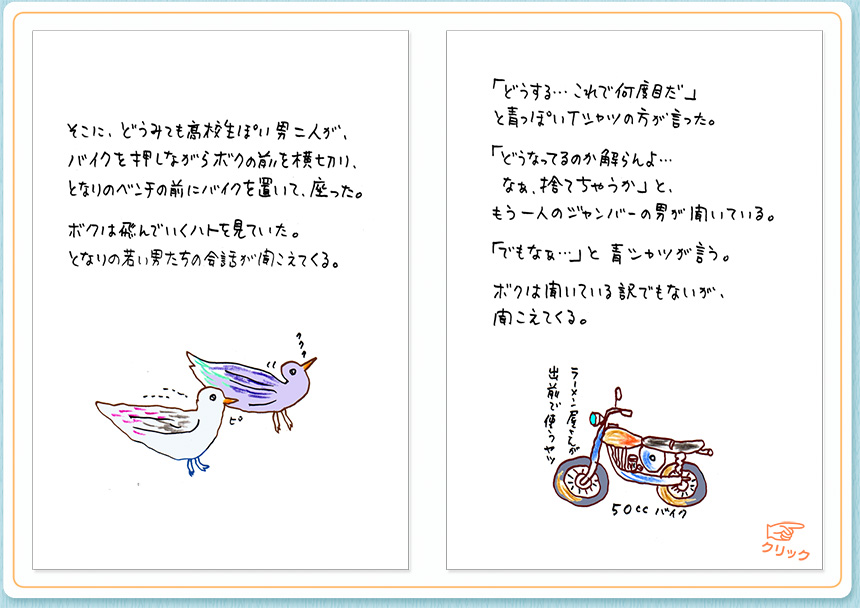 そこに、どうみても高校生ぽい男二人が、
バイクを押しながらボクの前を横切り、
となりのベンチの前にバイクを置いて、座った。
ボクは飛んでいくハトを見ていた。
となりの若い男たちの会話が聞こえてくる。
ククク
ピ
「どうする…これで何度目だ」
と青っぽいTシャツの方が言った。
「どうなってるのか解らんよ…
なぁ、捨てちゃうか」と、
もう一人のジャンバーの男が聞いている。
「でもなぁ…」と青シャツが言う。
ボクは聞いている訳でもないが、
聞こえてくる。
ラーメン屋さんが
出前で使うヤツ
50cc バイク
クリック